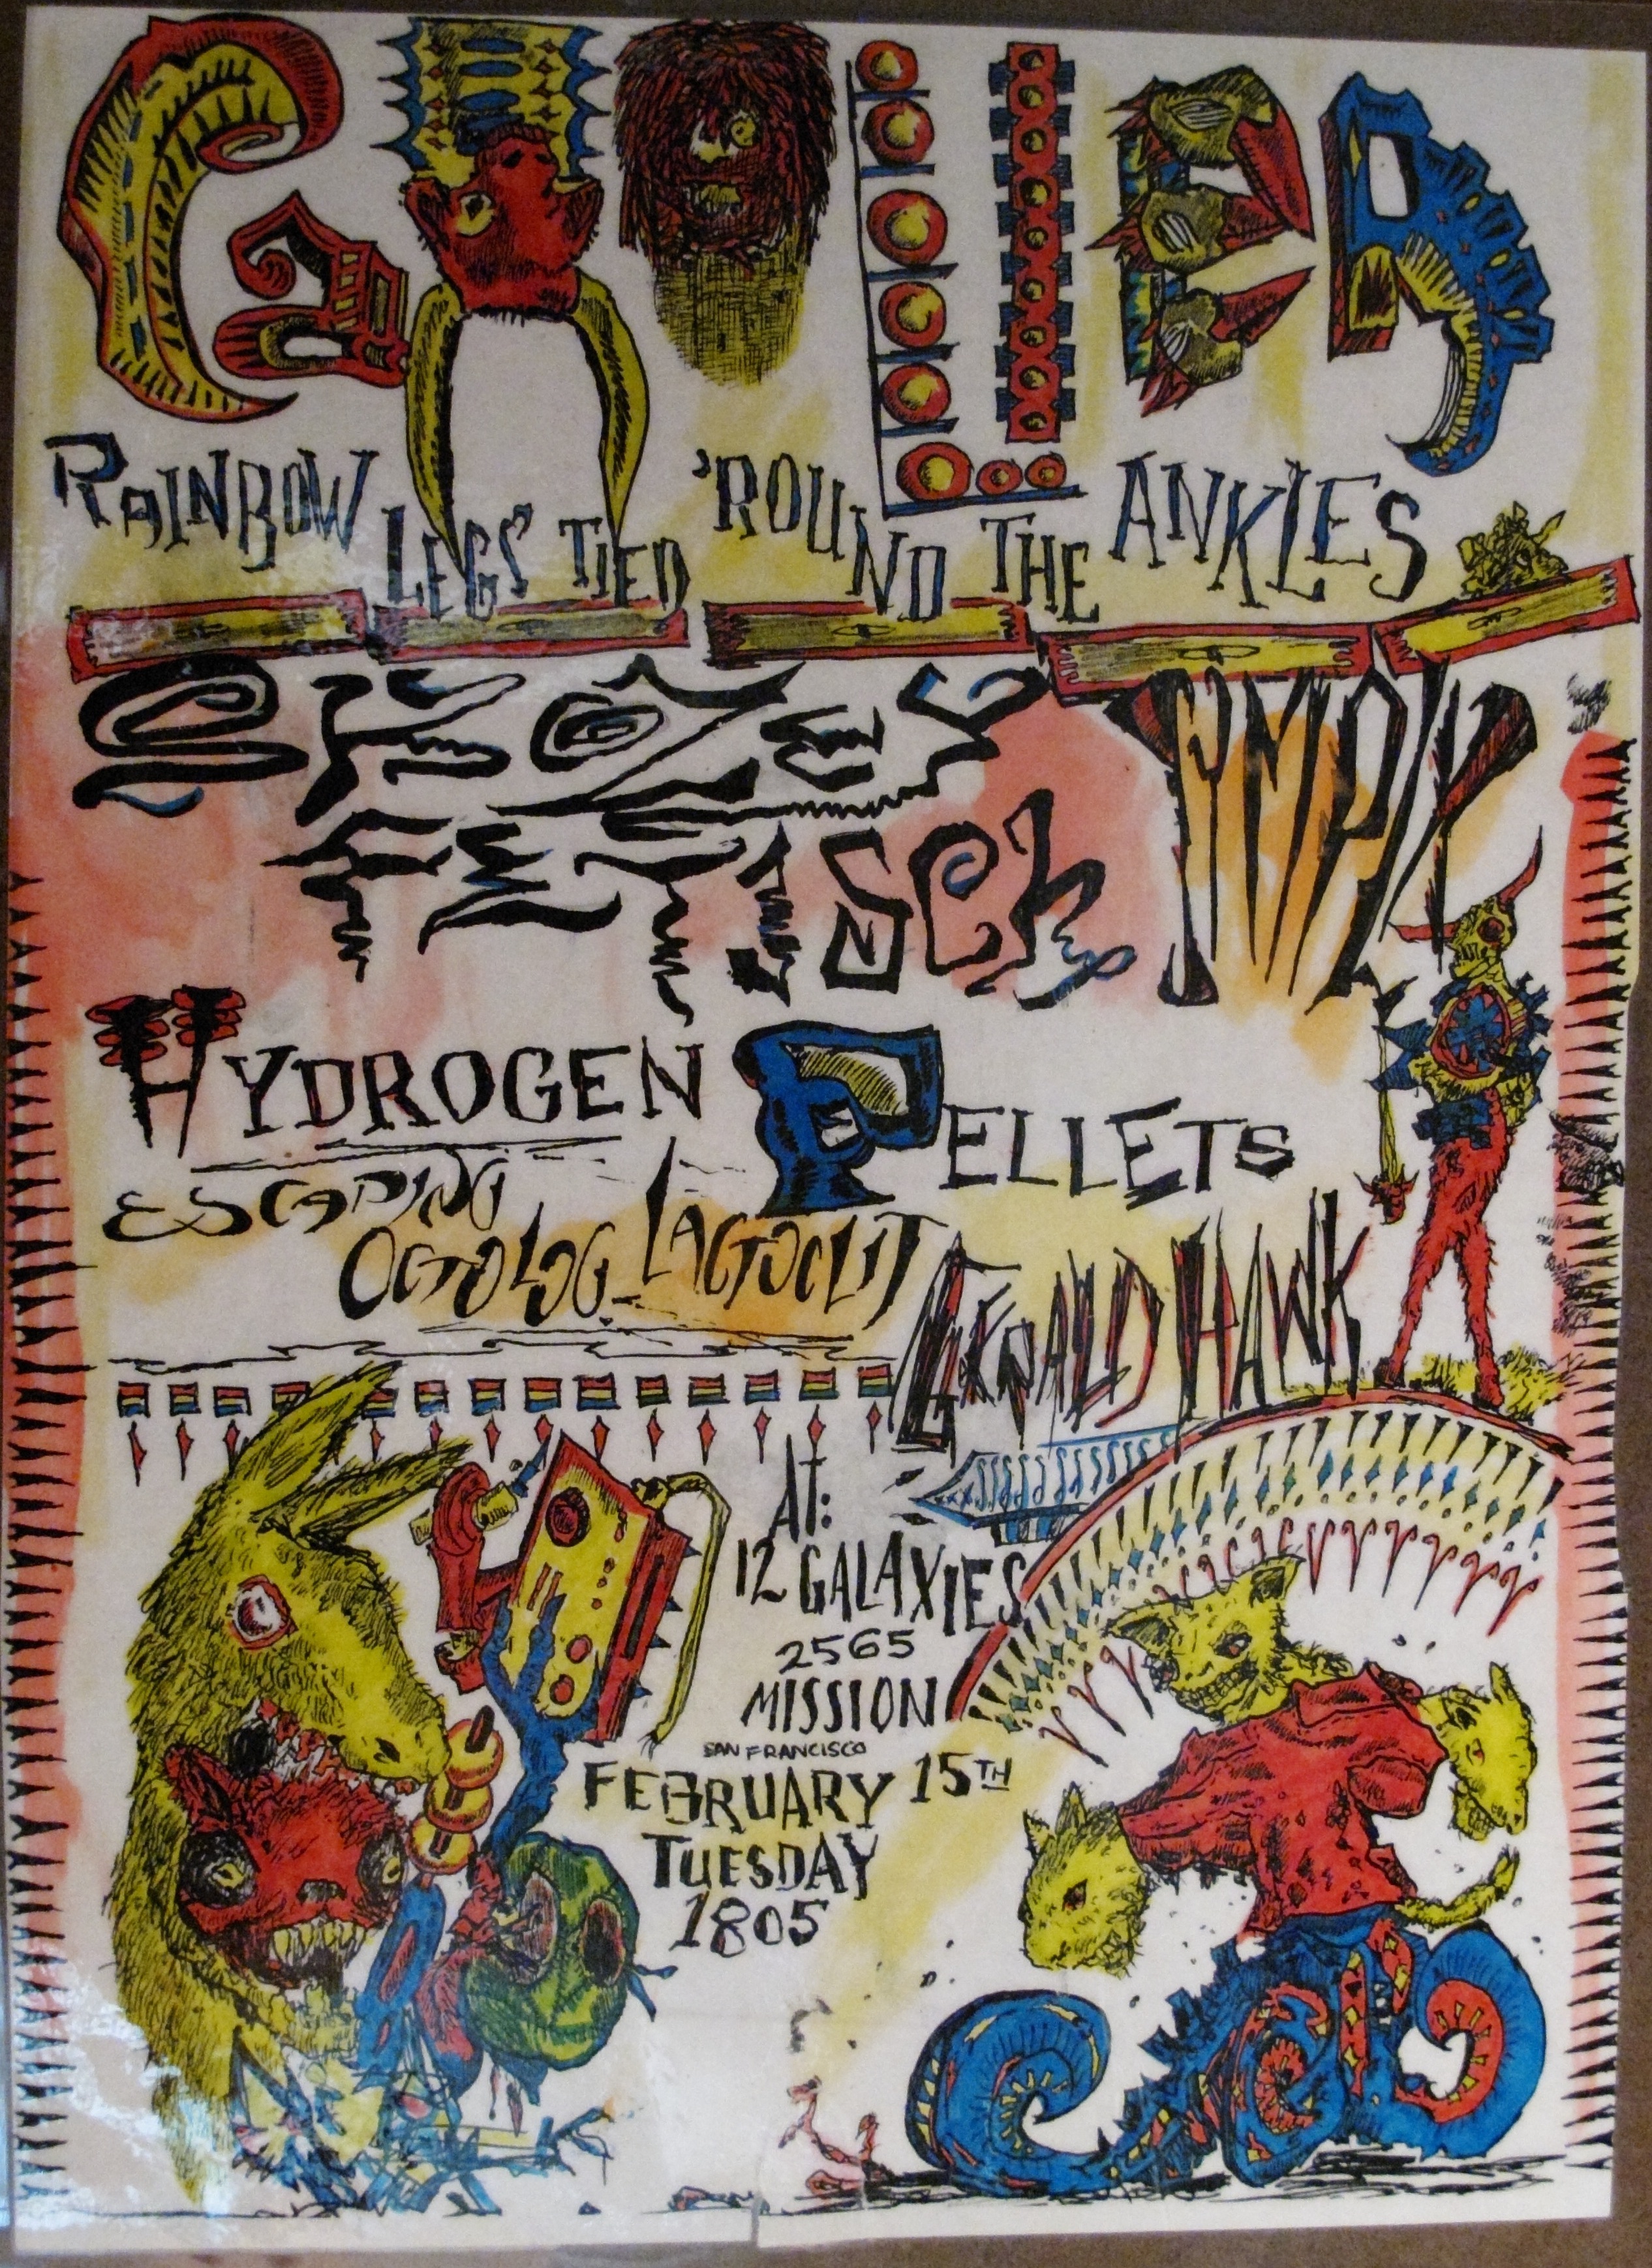 RAINBOW LEGS TIED 'ROUND THE ANKLES
SKOZEY
FETISCH
HYDROGEN PELLETS
ESCAPING
OCTOLOG LACTOCLIT
GERALD HAWK
AT:
12 GALAXIES
2565
MISSION
SAN FRANCISCO
FEBRUARY 15TH
TUESDAY
1805